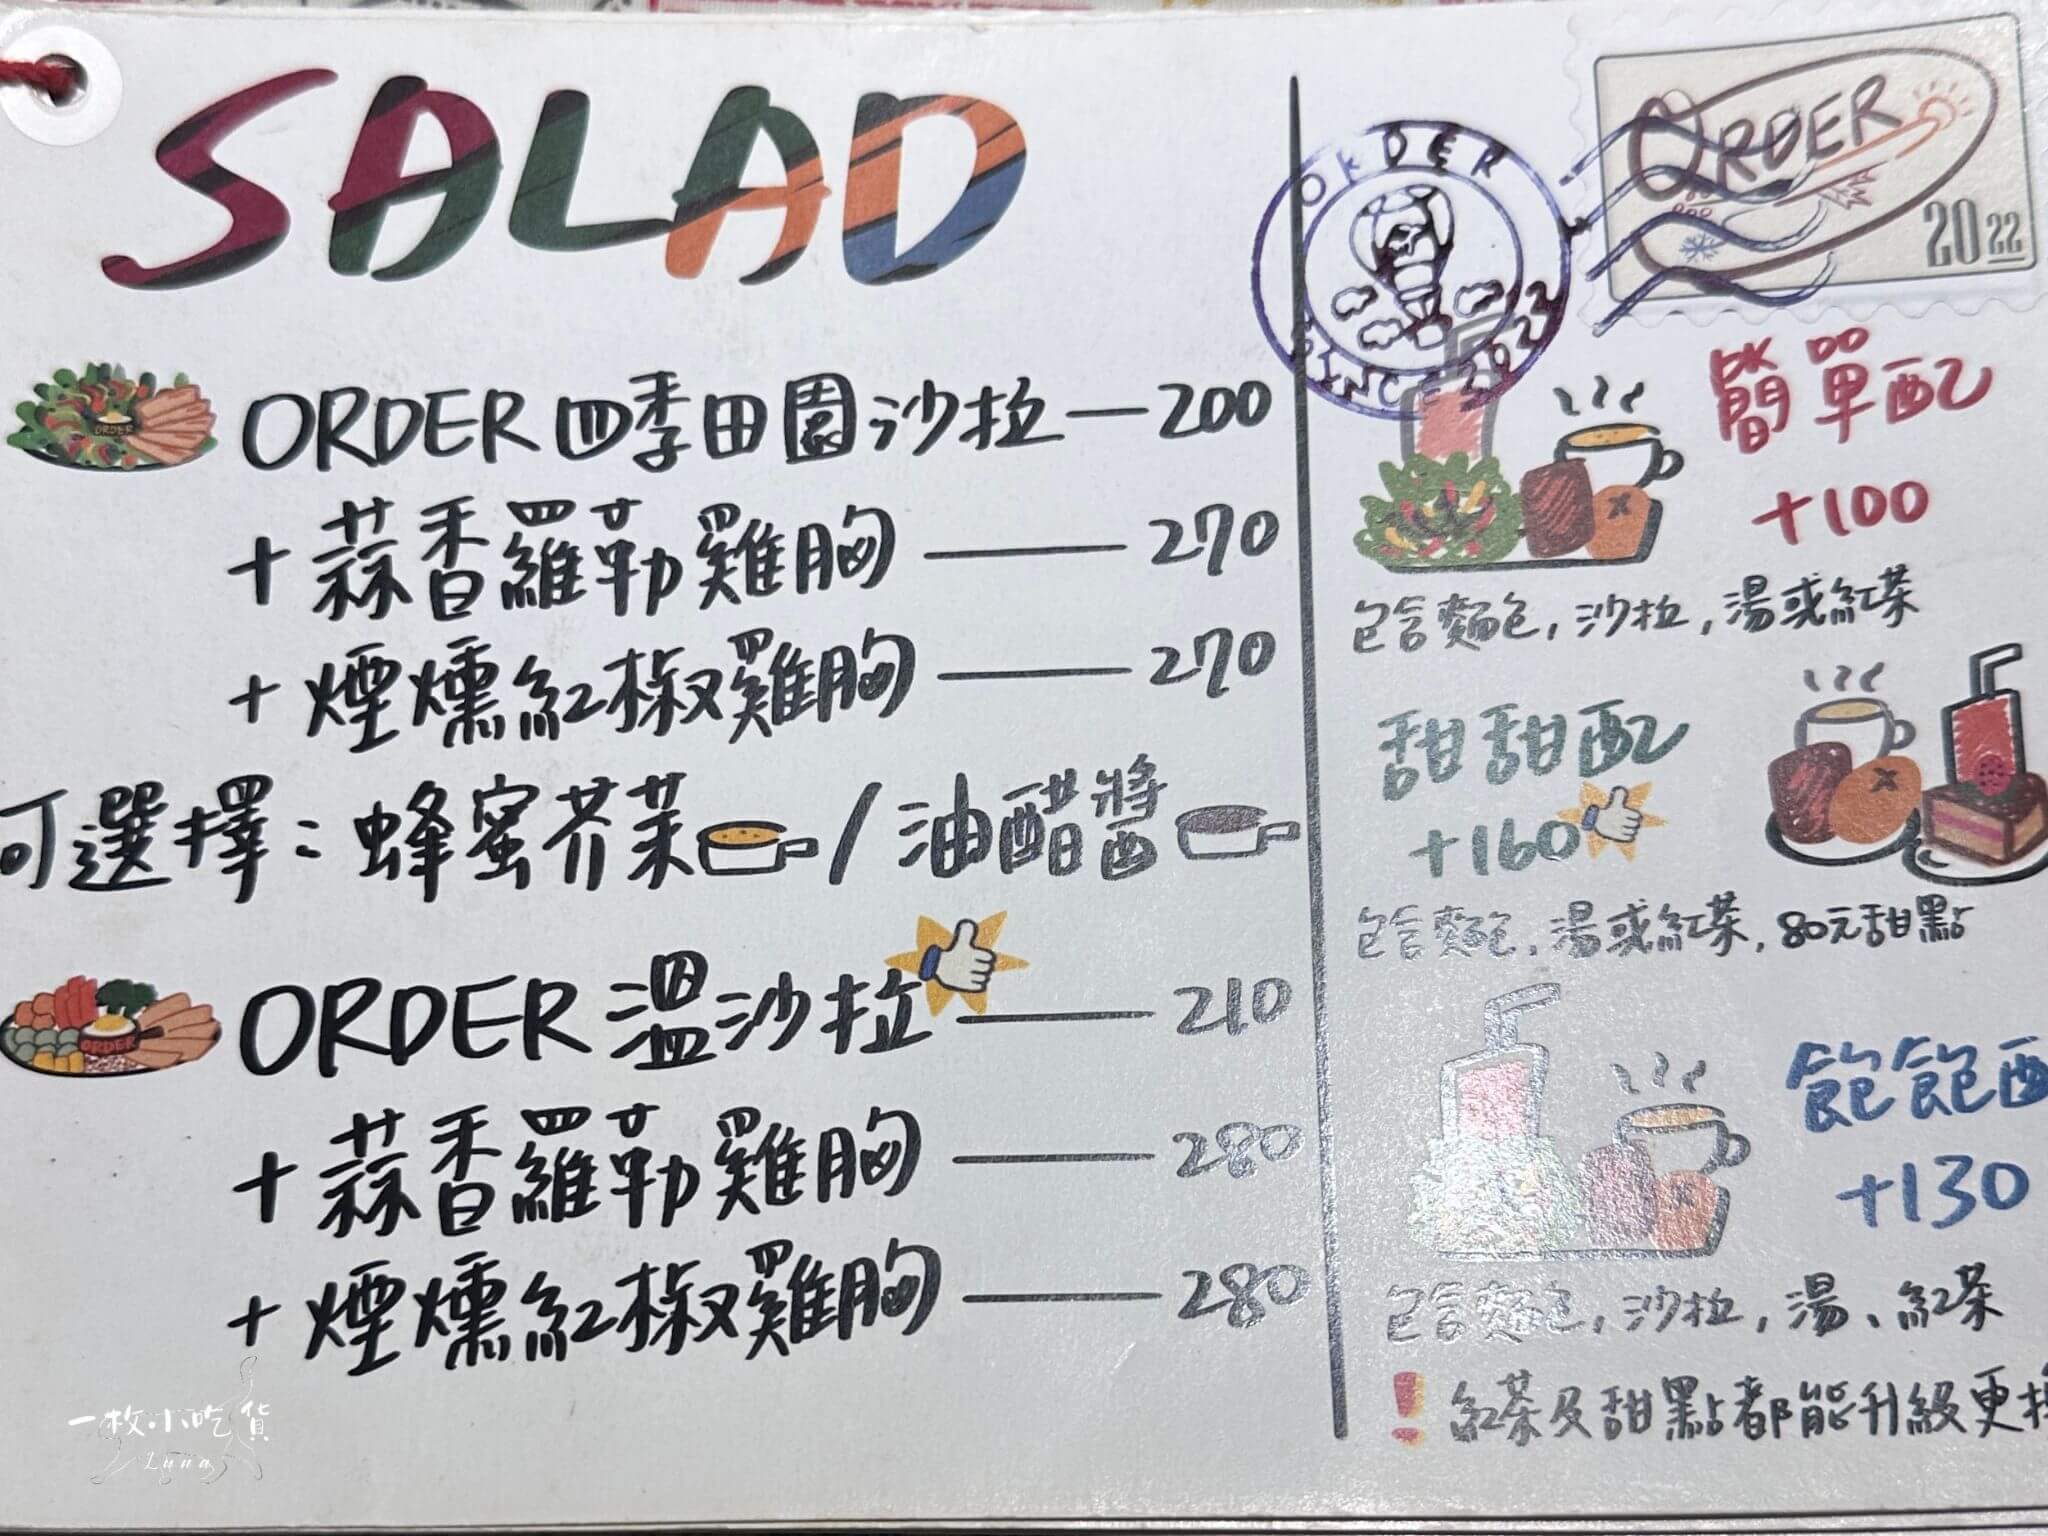 SALAD
ORDER 四季田園沙拉 — 200
+ 蒜香羅勒雞胸 — 270
+ 煙燻紅椒雞胸 — 270
可選擇：蜂蜜芥茉 / 油醋醬
ORDER 溫沙拉 — 210
ORDER
+ 蒜香羅勒雞胸 — 280
+ 煙燻紅椒雞胸 — 280
一枚小吃貨
Luna
ORDER
20 22
ORDER
SINCE 2022
簡單配
+100
包含麵包, 沙拉, 湯或紅茶
甜甜配
+160
包含麵包, 湯或紅茶, 80元甜點
飽飽配
+130
包含麵包, 沙拉, 湯、紅茶
! 紅茶及甜點都能升級更